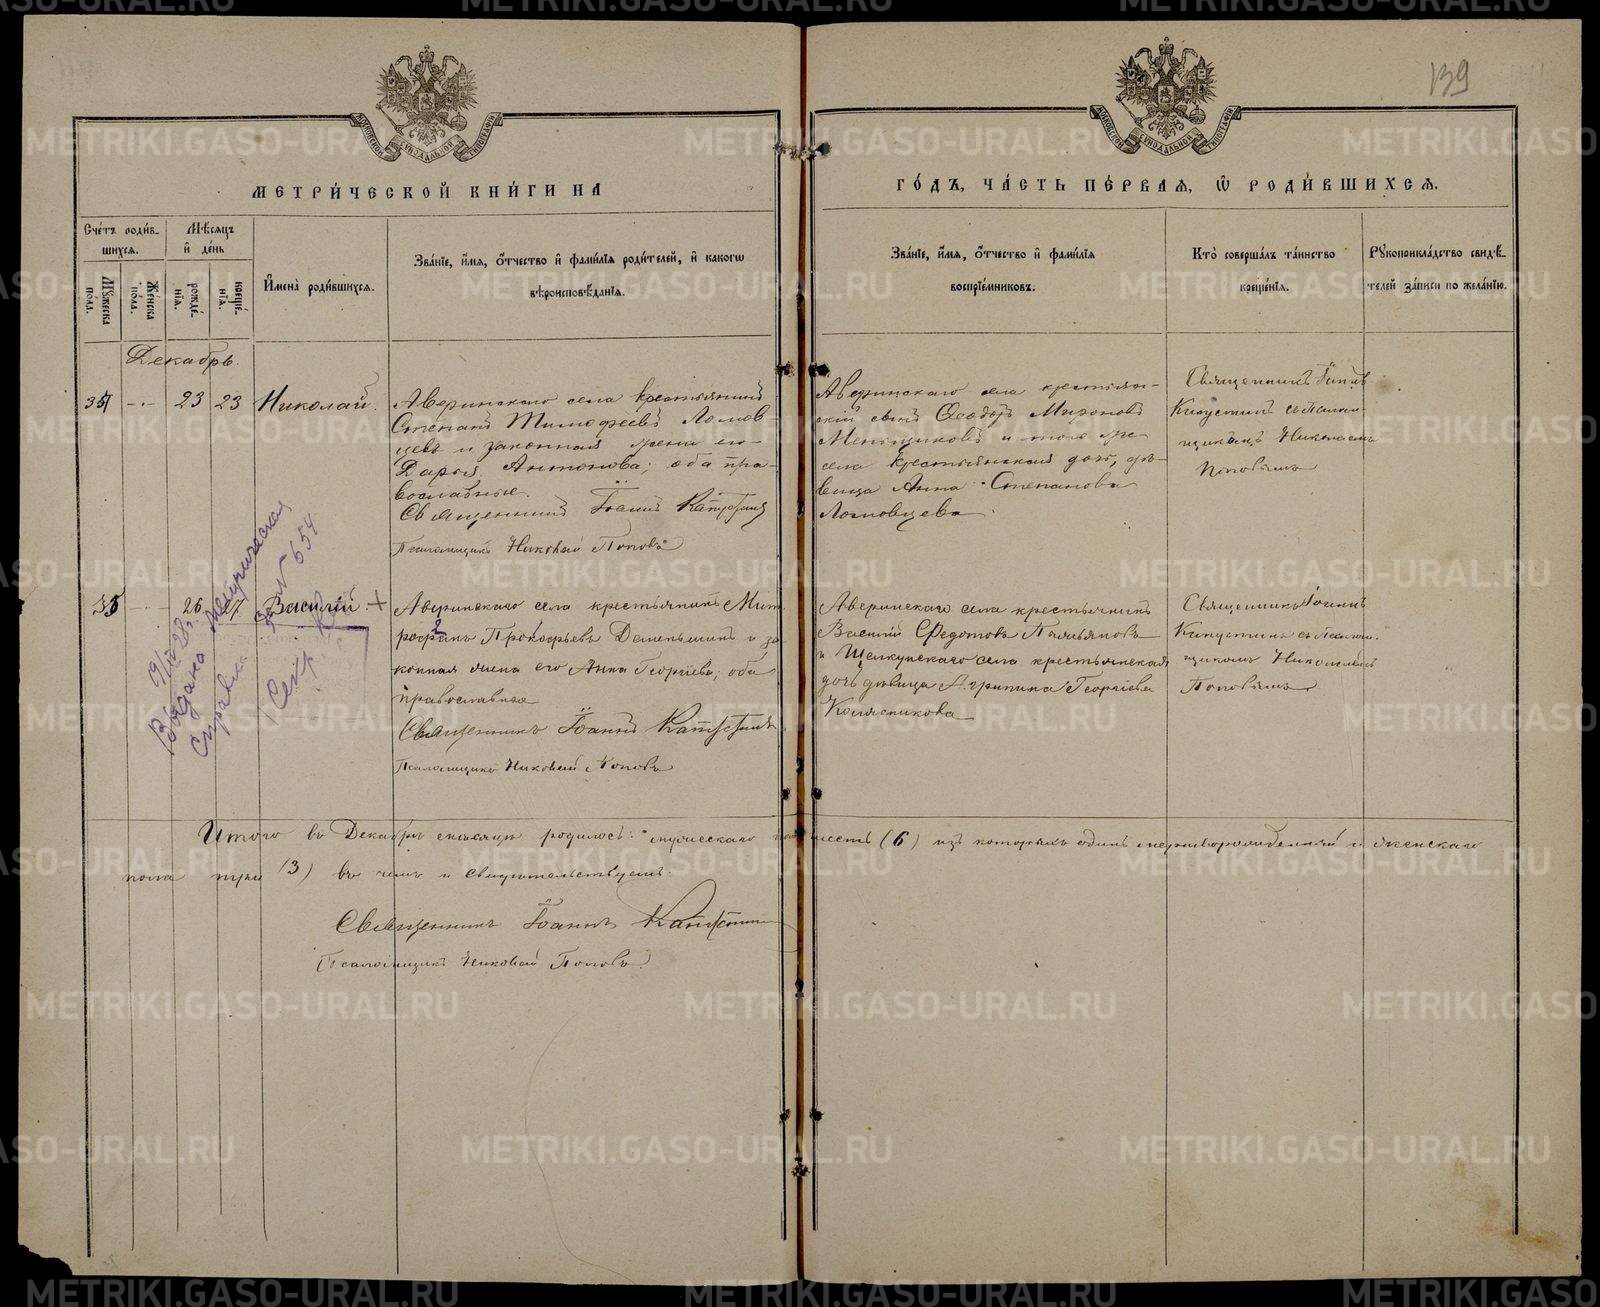 139
МЕТРИ́ЧЕСКОЙ КНИ́ГИ НА
ГО́ДЪ, ЧА́СТЬ ПЕ́РВАЯ, Ѿ РОДИ́ВШИХСЯ.
Сче́тъ роди́в-
шихся.
Му́жеска пола.
Же́нска пола.
Мѣ́сяцъ
и҆ де́нь
рожде́-
нїя.
креще́-
нїя.
И҆мена̀ роди́вшихся.
Зва́нїе, и҆́мя, ѻ҆́тчество и҆ фами́лїя роди́телей, и҆ како́гѡ
вѣроисповѣ́данїя.
Зва́нїе, и҆́мя, ѻ҆́тчество и҆ фами́лїя
воспрїе́мниковъ.
Кто̀ соверша́лъ та́инство
креще́нїя.
Рꙋкоприкла́дство свидѣ́-
телей за́писи по жела́нїю.
Декабрь.
23 23 Николай.
Аверинскаго села крестьянинъ
Степанъ Тимофеевъ Ломов-
цевъ и законная жена его
Дарья Антонова; оба пра-
вославные.
Священникъ Іоаннъ Капустинъ
Псаломщикъ Николай Поповъ
Аверинскаго села крестьян-
скій сынъ Ѳеодоръ Мироновъ
Меньщиковъ и того же
села крестьянская дочь, дѣ-
вица Анна Степанова
Ломовцева
Священникъ Іоаннъ
Капустинъ съ псалом-
щикомъ Николаемъ
Поповымъ
35 26 27 Василій +
Аверинскаго села крестьянинъ Мит-
рофанъ Прокофьевъ Деменьшинъ и за-
конная жена его Анна Георгіева; оба
православные
Священникъ Іоаннъ Капустинъ
Псаломщикъ Николай Поповъ
Аверинскаго села крестьянинъ
Василій Ѳедотовъ
и Щелкунскаго села крестьянская
дочь дѣвица Агрипина Георгіева
Колясникова
Священникъ Іоаннъ
Капустинъ съ псалом-
щикомъ Николаемъ
Поповымъ
Выдана метрическая
справка за № 654
Итого въ Декабрѣ мѣсяцѣ родилось: мужескаго пола шесть (6) изъ которыхъ одинъ мертворожденный и женскаго
пола три (3) въ чемъ и свидѣтельствуемъ:
Священникъ Іоаннъ Капустинъ
Псаломщикъ Николай Поповъ
METRIKI.GASO-URAL.RU